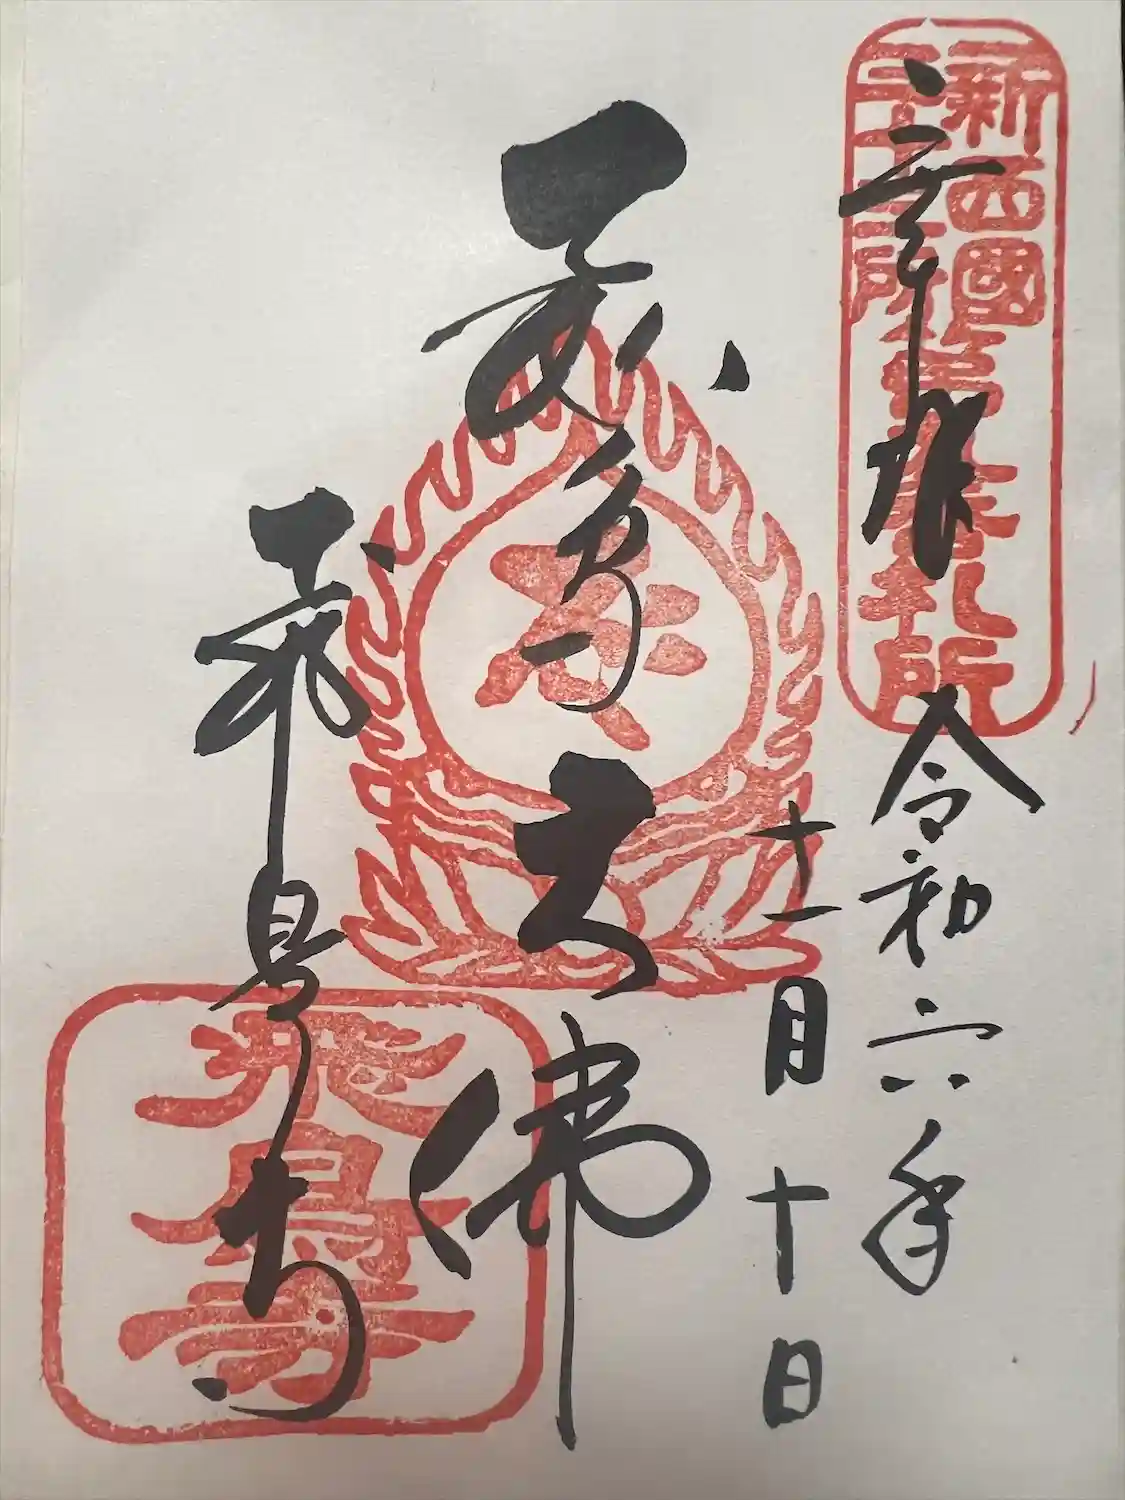 奉拝
新西國
三十三所
第九番札所
令和六年
十一月十日
飛鳥大佛
飛鳥寺
飛鳥寺